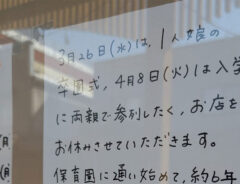 3月26日(水)は、1人娘の
卒園式、4月8日(火)は入学
に両親で参列したく、お店を
お休みさせていただきます。
保育園に通い始めて、約6年
(月
(月